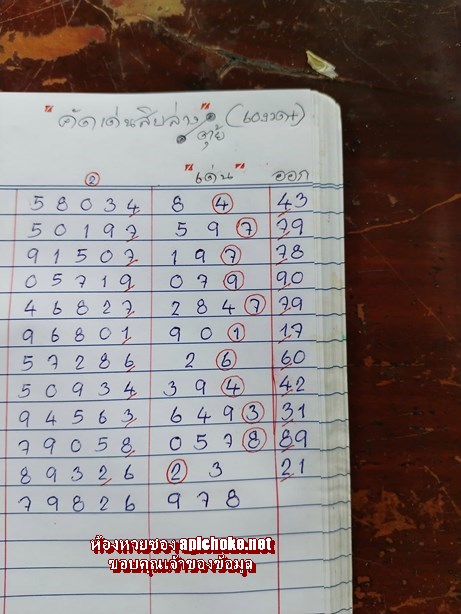 "คัดเด่นสิบล่าง" (60งวด+)
ตุ้ย
② "เด่น" ออก
5 8 0 3 4 8 ④ 43
5 0 1 9 7 5 9 ⑦ 79
9 1 5 0 7 1 9 ⑦ 78
0 5 7 1 9 0 7 ⑨ 90
4 6 8 2 7 2 8 4 ⑦ 79
9 6 8 0 1 9 0 ① 17
5 7 2 8 6 2 ⑥ 60
5 0 9 3 4 3 9 ④ 42
9 4 5 6 3 6 4 9 ③ 31
7 9 0 5 8 0 5 7 ⑧ 89
8 9 3 2 6 ② 3 21
7 9 8 2 6 9 7 8
ห้องหวยซอง apichoke.net
ขอบคุณเจ้าของข้อมูล